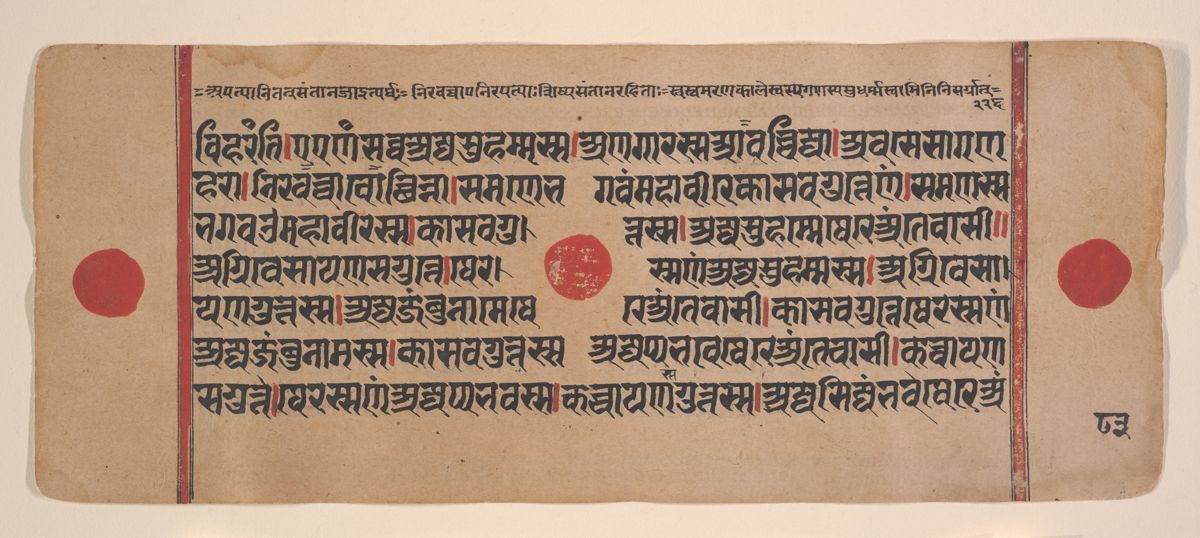 =अपत्यानि तत्संतानजा इत्यर्थः= निरवच्चा निरपत्याः शिष्यसंतानरहिताः=स्वस्वमरणकाले स्वस्वगणस्य सुधर्मस्वामिनि निसर्गात्=
२२६
विहरंति।एएणं सव्वे अज्जसुहम्मस्स।अणगारस्स आवच्चिज्जा।अवसेसा गण
हरा।निरवच्चा वोच्छिन्ना।समणे भ गवं महावीरे कासवगुत्तेणं।समणस्स
भगवओ महावीरस्स।कासवगु। त्तस्स।अज्जसुहम्मे थेरे अंतेवासी॥
अग्गिवेसायणसगुत्ते।थेरा स्सणं अज्जसुहम्मस्स।अग्गिवेसा।
यणगुत्तस्स।अज्जजंबुनामे थे रे अंतेवासी।कासवगुत्ते थेरस्सणं
अज्जजंबुनामस्स।कासवगुत्तस्स अज्जप्पभवे थेरे अंतेवासी।कच्चायण
सगुत्ते।थेरस्सणं अज्जप्पभवस्स।कच्चायणसगुत्तस्स।अज्जसिज्जंभवे थेरे अं
८३